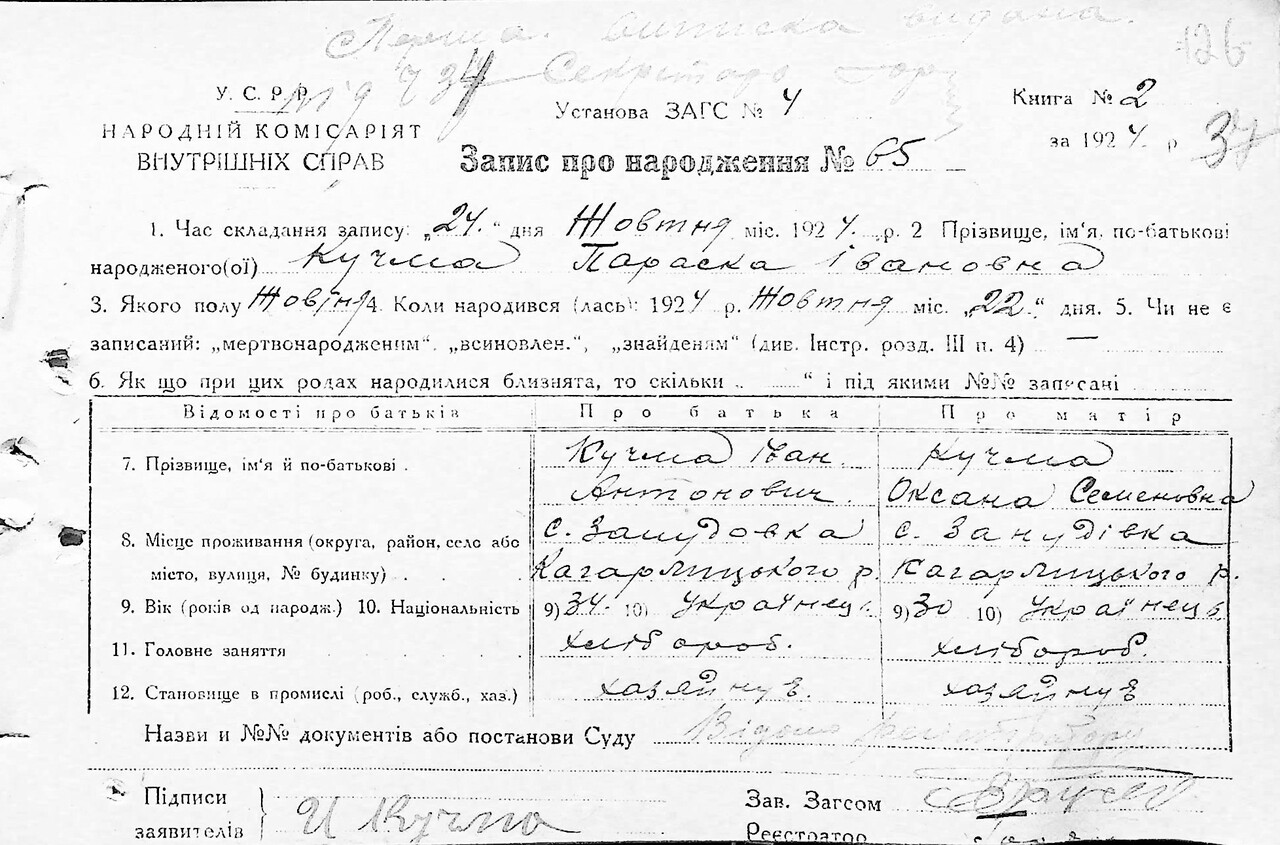 Перша виписка видана.
126
Секретарь
У. С. Р. Р.
Установа ЗАГС № 4
Книга № 2
НАРОДНІЙ КОМІСАРІЯТ
за 1924 р
37
ВНУТРІШНІХ СПРАВ
Запис про народження № 65
1. Час складання запису: „24." дня Жовтня міс. 1924 „р. 2 Прізвище, ім'я, по-батькові
народженого(ої) Кучма Параска Івановна
3. Якого полу Жовіня 4. Коли народився (лась): 1924 р. Жовтня міс. „22." дня. 5. Чи не є
записаний: „мертвонародженим", „всиновлен.", „знайденям" (див. Інстр. розд. III п. 4) —
6. Як що при цих родах народилися близнята, то скільки „ " і під якими №№ записані
Відомості про батьків Про батька Про матір
7. Прізвище, ім'я й по-батькові . Кучма Іван Кучма
Антонович. Оксана Семеновна
8. Місце проживання (округа, район, село або с. Зашудовка с. Занудівка
місто, вулиця, № будинку) . . Кагарлицького р. Кагарлицького р.
9. Вік (років од народж.) 10. Національність 9) 34 10) Українець 9) 30 10) Українець
11. Головне заняття хлібороб. хлібороб.
12. Становище в промислі (роб., служб., хаз.) хазяйнув. хазяйнув
Назви и №№ документів або постанови Суду Відомо реєстратору
Підписи
Зав. Загсом
заявителів И Кучма
Реєстратор